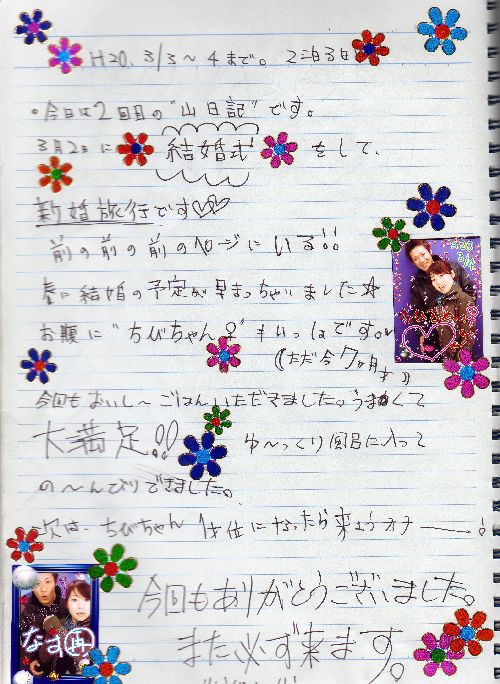 H20. 3/3〜4まで。 2泊3日
・今日は2回目の"山日記"です。
3月2日に 結婚式 をして、
新婚旅行です♡♡
前の前の前のページにいる!!
春に結婚の予定が早まっちゃいました☆
お腹に"ちびちゃん♀"もいっしょです。
((ただ今7ヶ月才))
今回もおいし〜ごはんいただきました。うまくて
大満足!! ゆ〜っくり風呂に入って
の〜んびりできました。
次は、ちびちゃん1才位になったら来ようオナ――!
今回もありがとうございました。
また必ず来ます。
H20
なす再